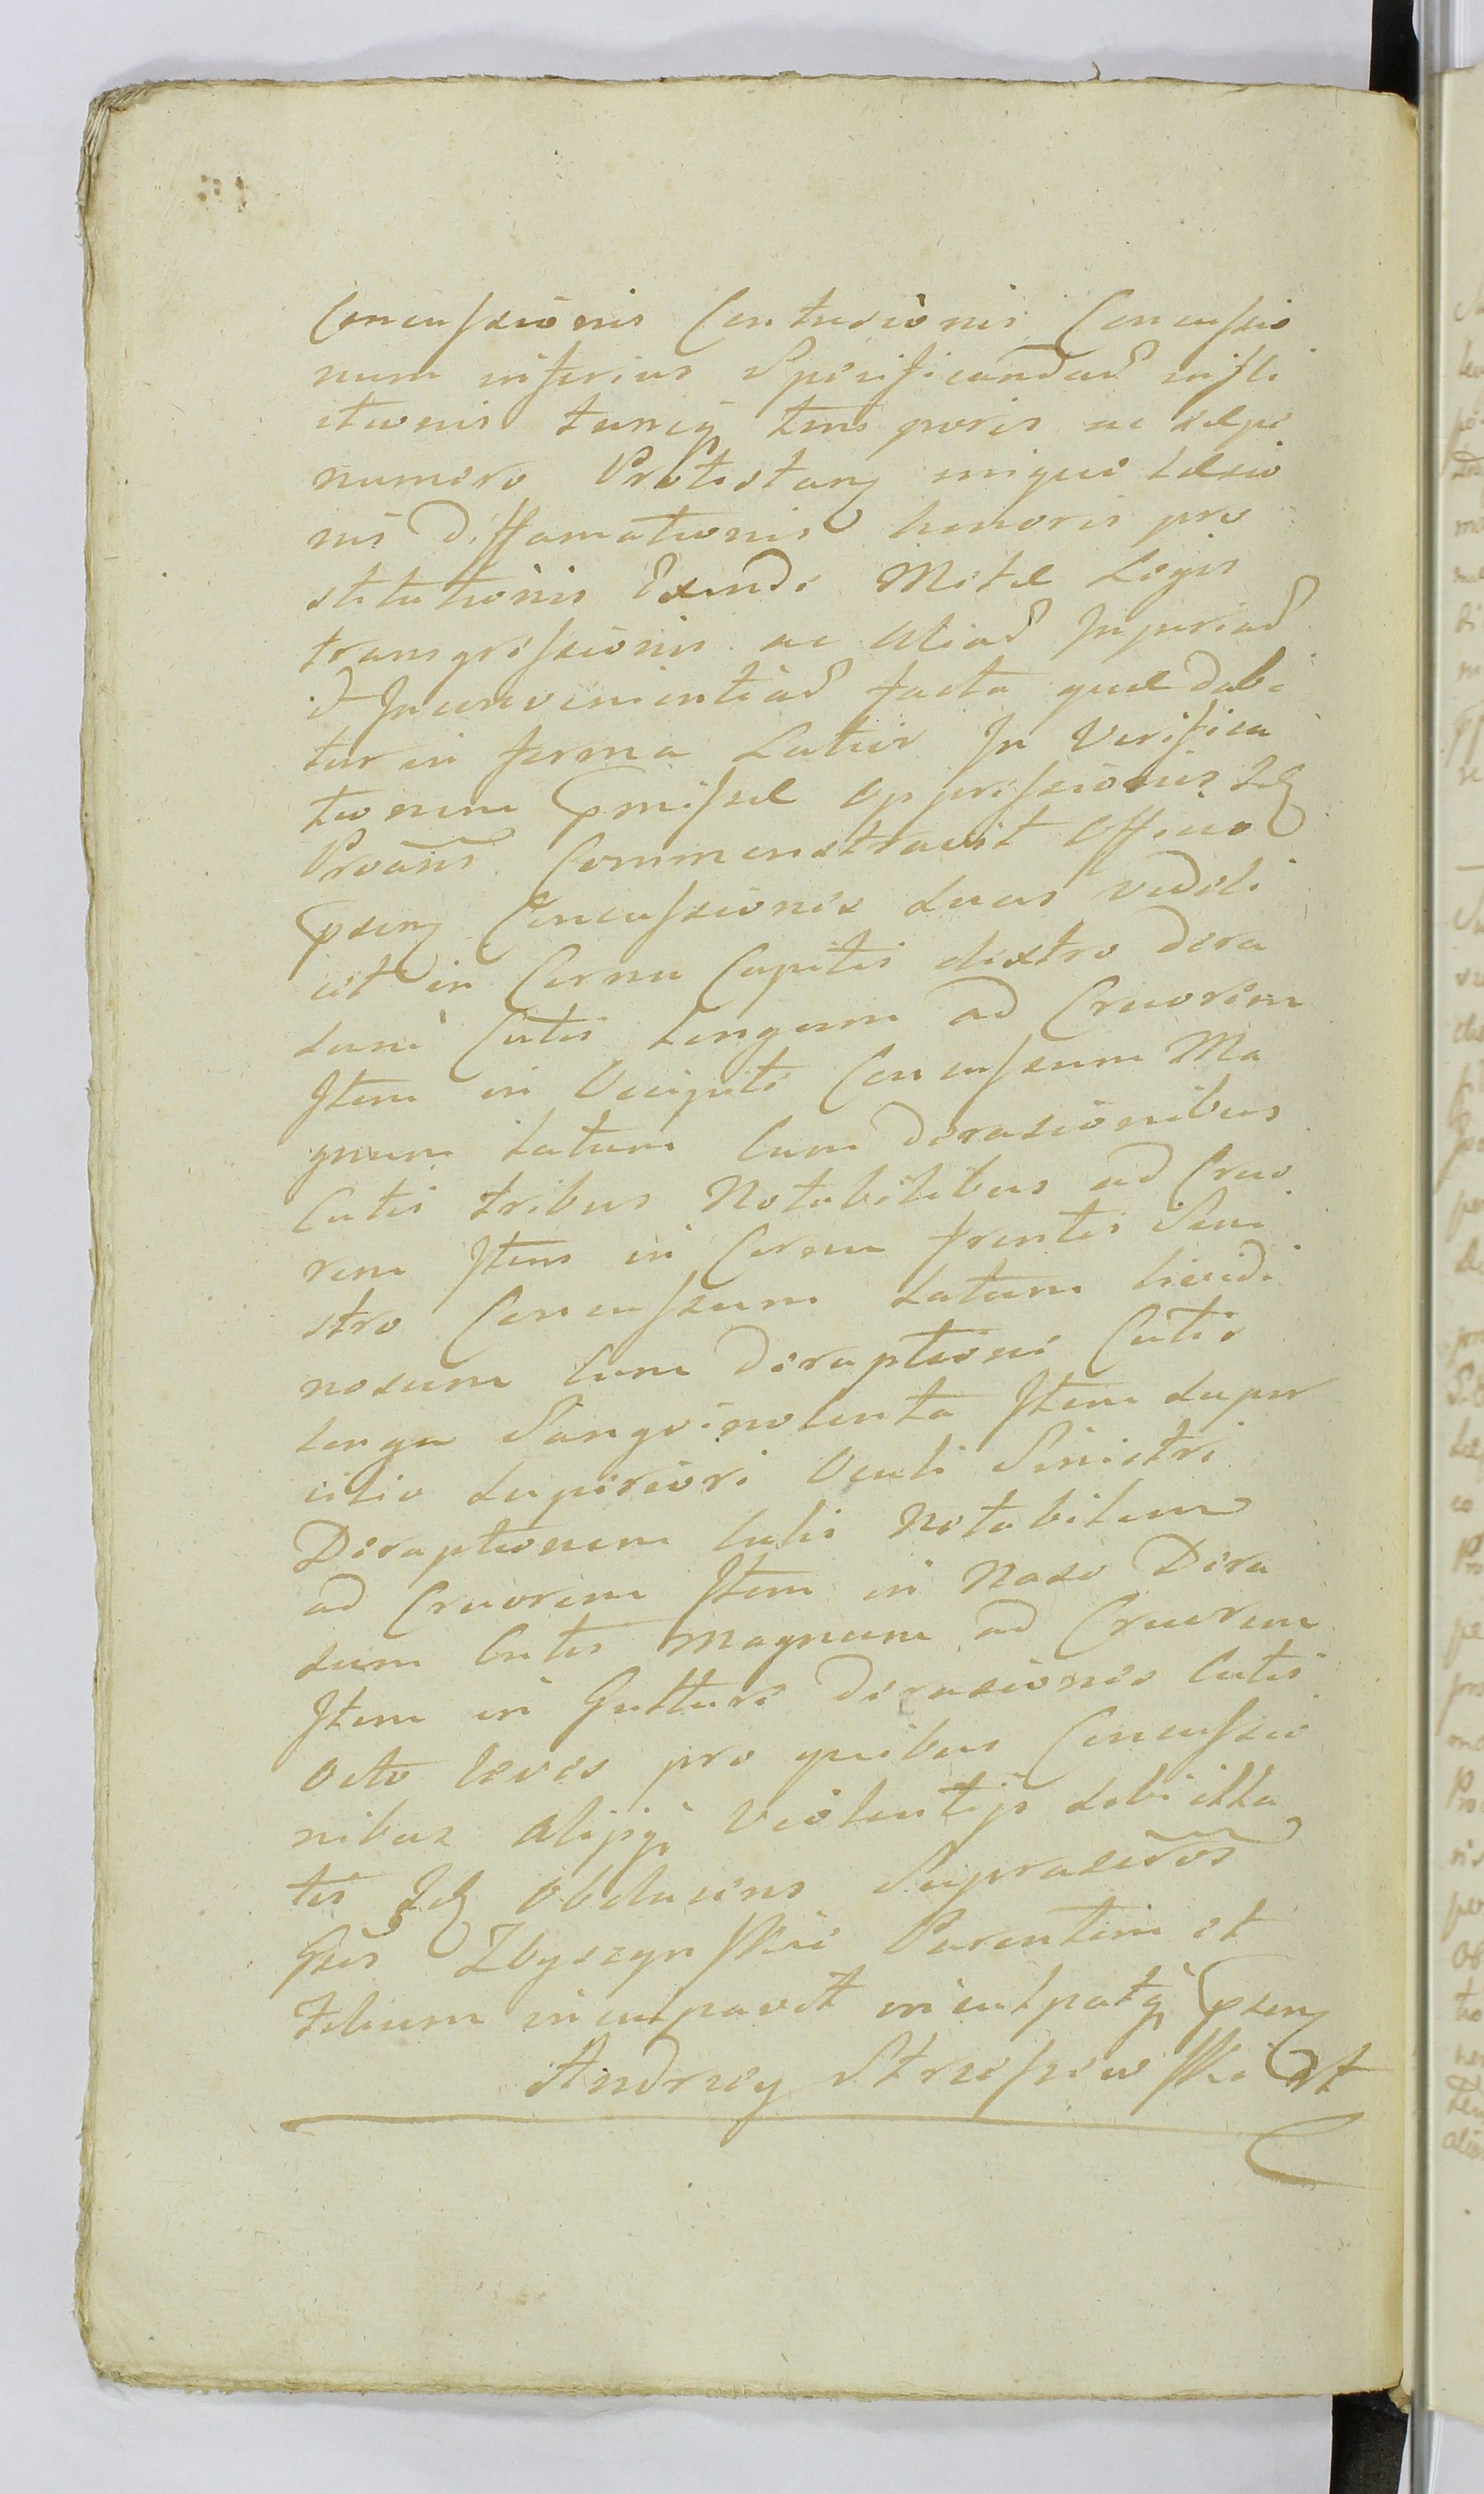 Concussionis Contusionis Concussio
num inferius Specificandaꝝ infli
ctionis tuncq̃ temporis ac saepe
numero Protestantẽ inique laesio
nis Diffamationis honoris pro
stitutionis Exinde Metae Legis
transgressionis ac aliaꝝ Injuriaꝝ
et Inconvenientiaꝝ facta quae dabi
tur in forma Latior In Verifica
tionem pmissae oppressionis Idẽ
Proãns Commonstravit Officio
psenti Concussiones duas videli
cet in Cornu Capitis dextro Dera
sum Cutis Longum ad Cruorem
Item in Occipite Concussum Ma
gnum latum Cum Derasionibus
Cutis tribus Notabilibus ad Cruo
rem Item in Cornu frontis Sini
stro Concussum Latum livedi
nosum Cum Deraptione Cutis
longa Sangvinolenta Item super
cilio superiori Oculi Sinistri
Deraptionem Cutis Notabilem
ad Cruorem Item in Naso Dera
sum Cutis Magnum ad Cruorem
Item in Gutture Derasiones Cutis
octo leves pro quibus Concussio
nibus Alijsq̃ Violentijs sibi illa
tis Idẽ obducens Suprascros
Gsos Zbyszynskie Parentem et
Filium inculpavit inculpatq̃ psenti
Andrzey Strzeszewski mp